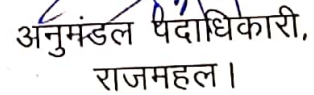 अनुमंडल पदाधिकारी,
राजमहल।